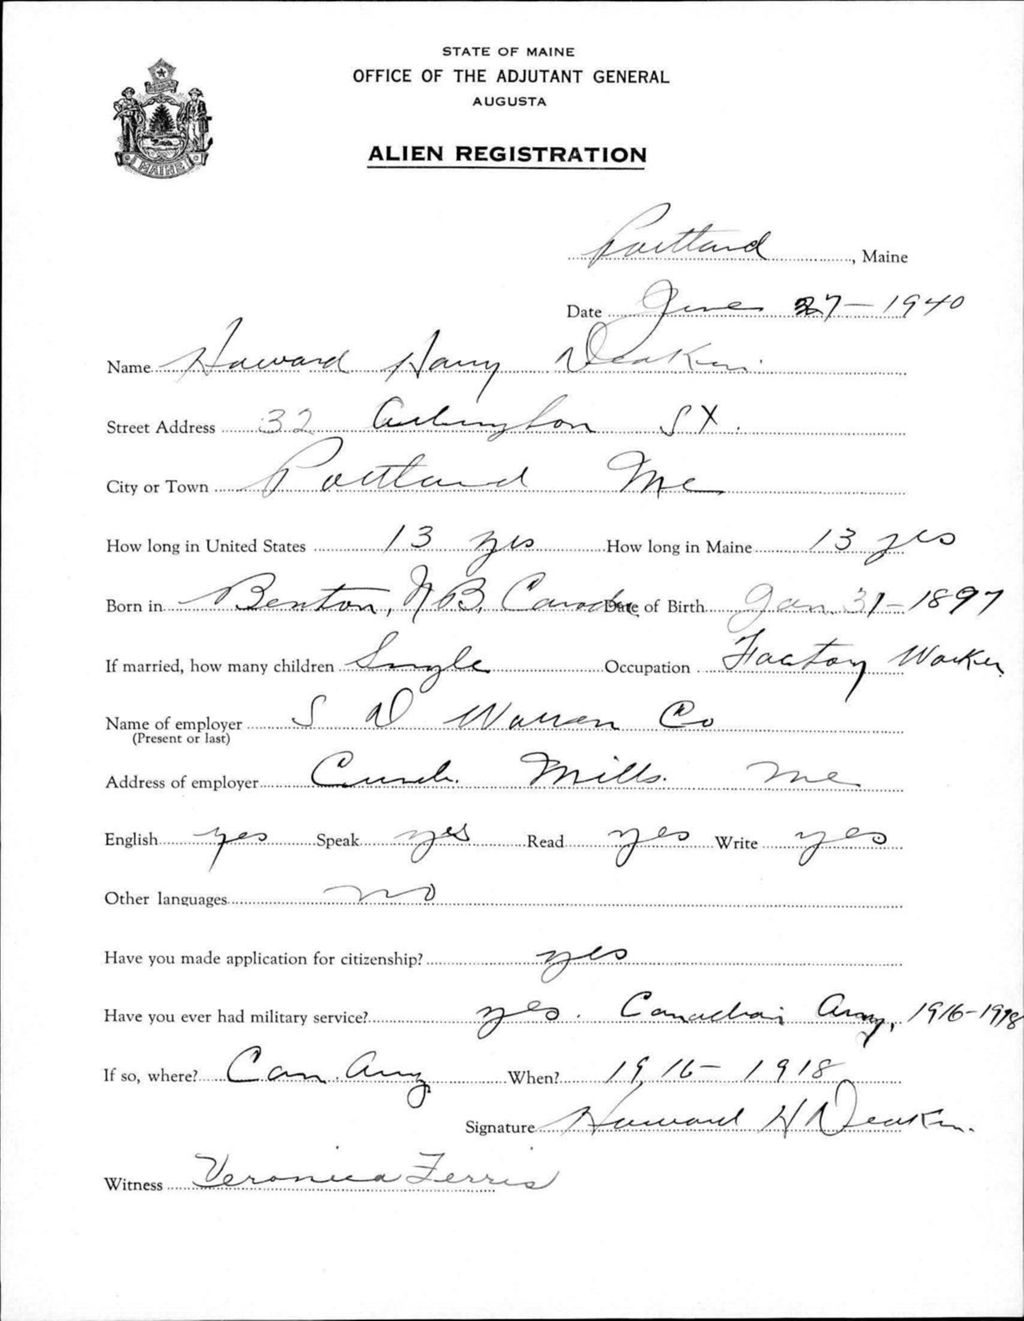 STATE OF MAINE
OFFICE OF THE ADJUTANT GENERAL
AUGUSTA
ALIEN REGISTRATION
MAINE
Portland, Maine
Date June 27 - 1940
Name Howard Harry Deakin.
Street Address 32 Arlington St.
City or Town Portland Me
How long in United States 13 yrs How long in Maine 13 yrs
Born in Benton, N.B. Canada Date of Birth Jan. 31 - 1897
If married, how many children Single Occupation Factory Worker
Name of employer S D Warren Co
(Present or last)
Address of employer Cumb. Mills. Me
English yes Speak yes Read yes Write yes
Other languages no
Have you made application for citizenship? yes
Have you ever had military service? yes. Canadian Army, 1916-1918
If so, where? Can. Army When? 1916 - 1918
Signature Howard H Deakin.
Witness Veronica Ferris